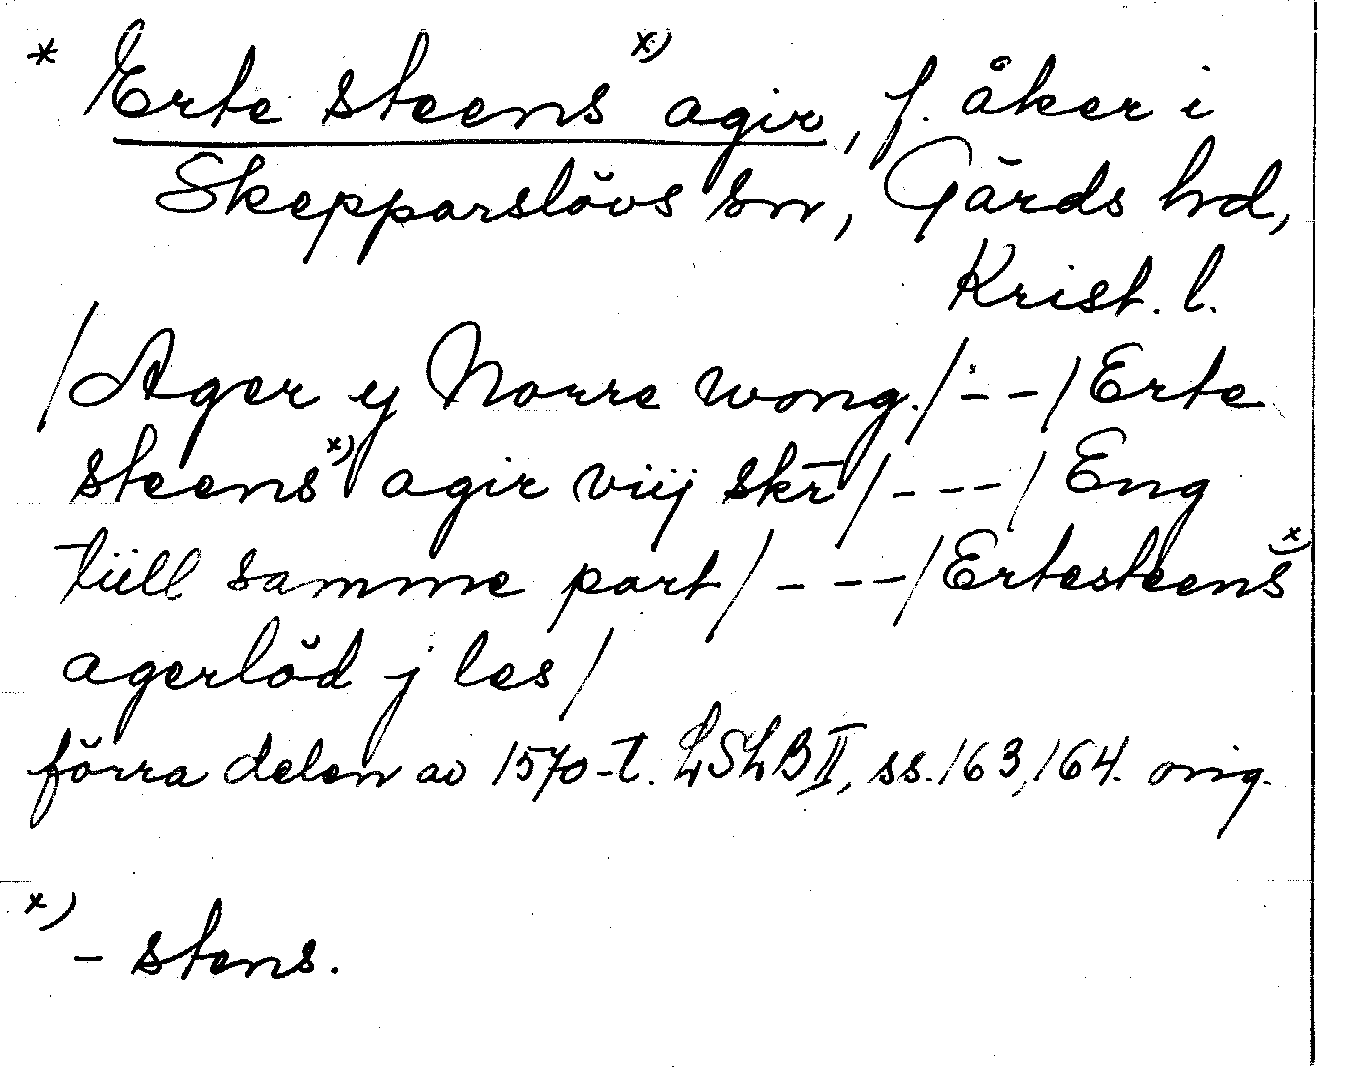 * Erte steens x) agir, f. åker i
Skepparslövs sn, Gärds hd,
Krist. l.
/Ager y Norre wong./---/Erte
steens x) agir viij skr̄/---/Eng
tiill samme part/---/Ertesteens x)
agerlöd j les/
förra delen av 1570-t. LSLB II, ss. 163, 164. orig.
x) - stens.